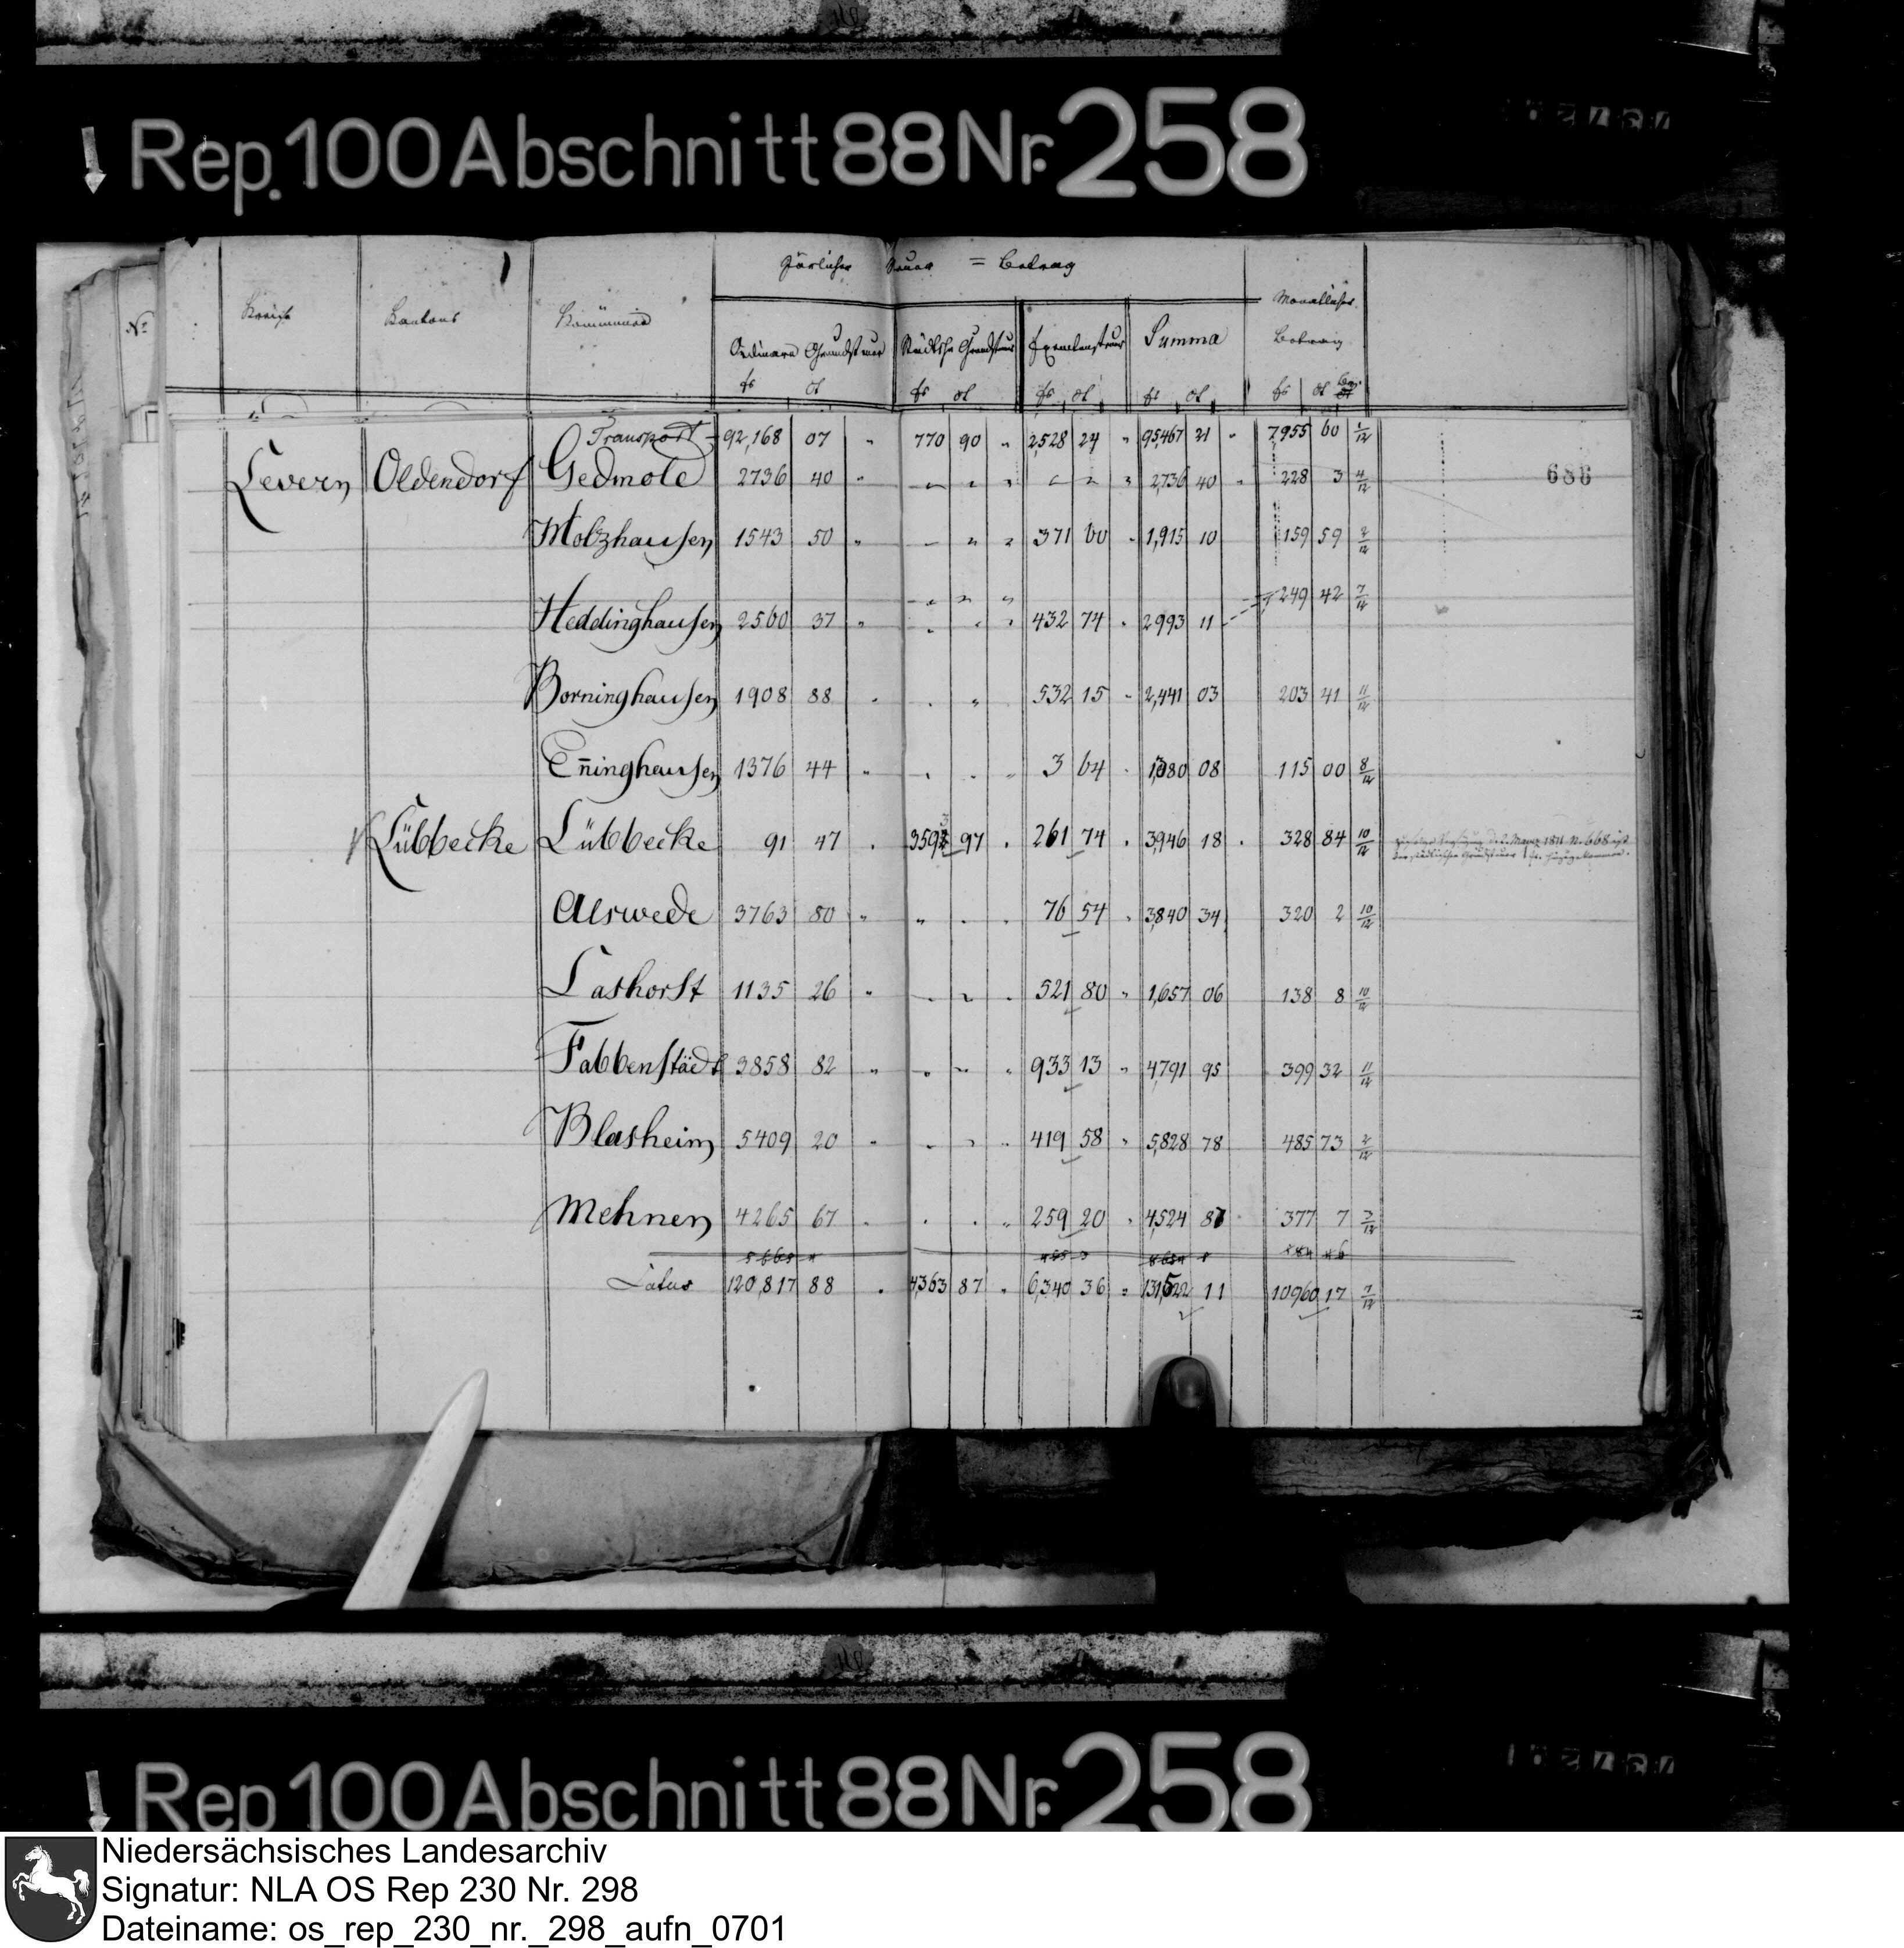 Rep. 100 Abschnitt 88 Nr. 258
Jährlicher Steuer = Betrag
No Kreise Kantons Kommunen Ordinare Grundsteuer Städtsche Grundsteuer Exemtensteuer Summa Monatlicher Betrag
fs ct fs ct fs ct fs ct fs ct
Transport 92,168 07 " 770 90 " 2,528 24 " 95,467 21 " 7,955 60 1/12
Levern Oldendorf Gedmold 2736 40 " " " " " " " 2,736 40 " 228 3 4/12
686
Molzhausen 1543 50 " " " " 371 60 " 1,915 10 159 59 2/12
Heddinghausen 2560 37 " " " " 432 74 " 2993 11 249 42 7/12
Borninghausen 1908 88 " " " 532 15 " 2,441 03 203 41 11/12
En̄inghausen 1376 44 " " " " 3 64 " 1380 08 115 00 8/12
Lübbecke Lübbecke 91 47 " 3592 3 97 " 261 74 " 3946 18 " 328 84 10/12
Maerz 1811 No 668
Alswede 3763 80 " " " " 76 54 " 3,840 34 320 2 10/12
Lashorst 1135 26 " " " " 521 80 " 1,657 06 138 8 10/12
Fabbenstädt 3858 82 " " " " 933 13 " 4,791 95 399 32 11/12
Blasheim 5409 20 " " " " 419 58 " 5,828 78 485 73 2/12
Mehnen 4265 67 " " " " 259 20 " 4,524 87 377 7 3/12
Latus 120,817 88 " 4,363 87 " 6,340 36 " 131,522 11 10960 17 7/12
Rep 100 Abschnitt 88 Nr. 258
Niedersächsisches Landesarchiv
Signatur: NLA OS Rep 230 Nr. 298
Dateiname: os_rep_230_nr._298_aufn_0701